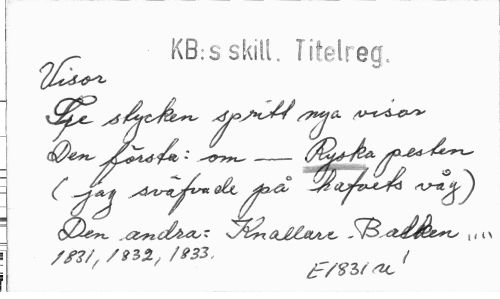 KB:s skill. Titelreg.
Visor
Tje stycken spritt nya visor
Den första: om — Ryska pesten
( jag sväfvade på hafvets våg)
Den andra: Knallare-Balken ....
1831, 1832, 1833.
E1831u'